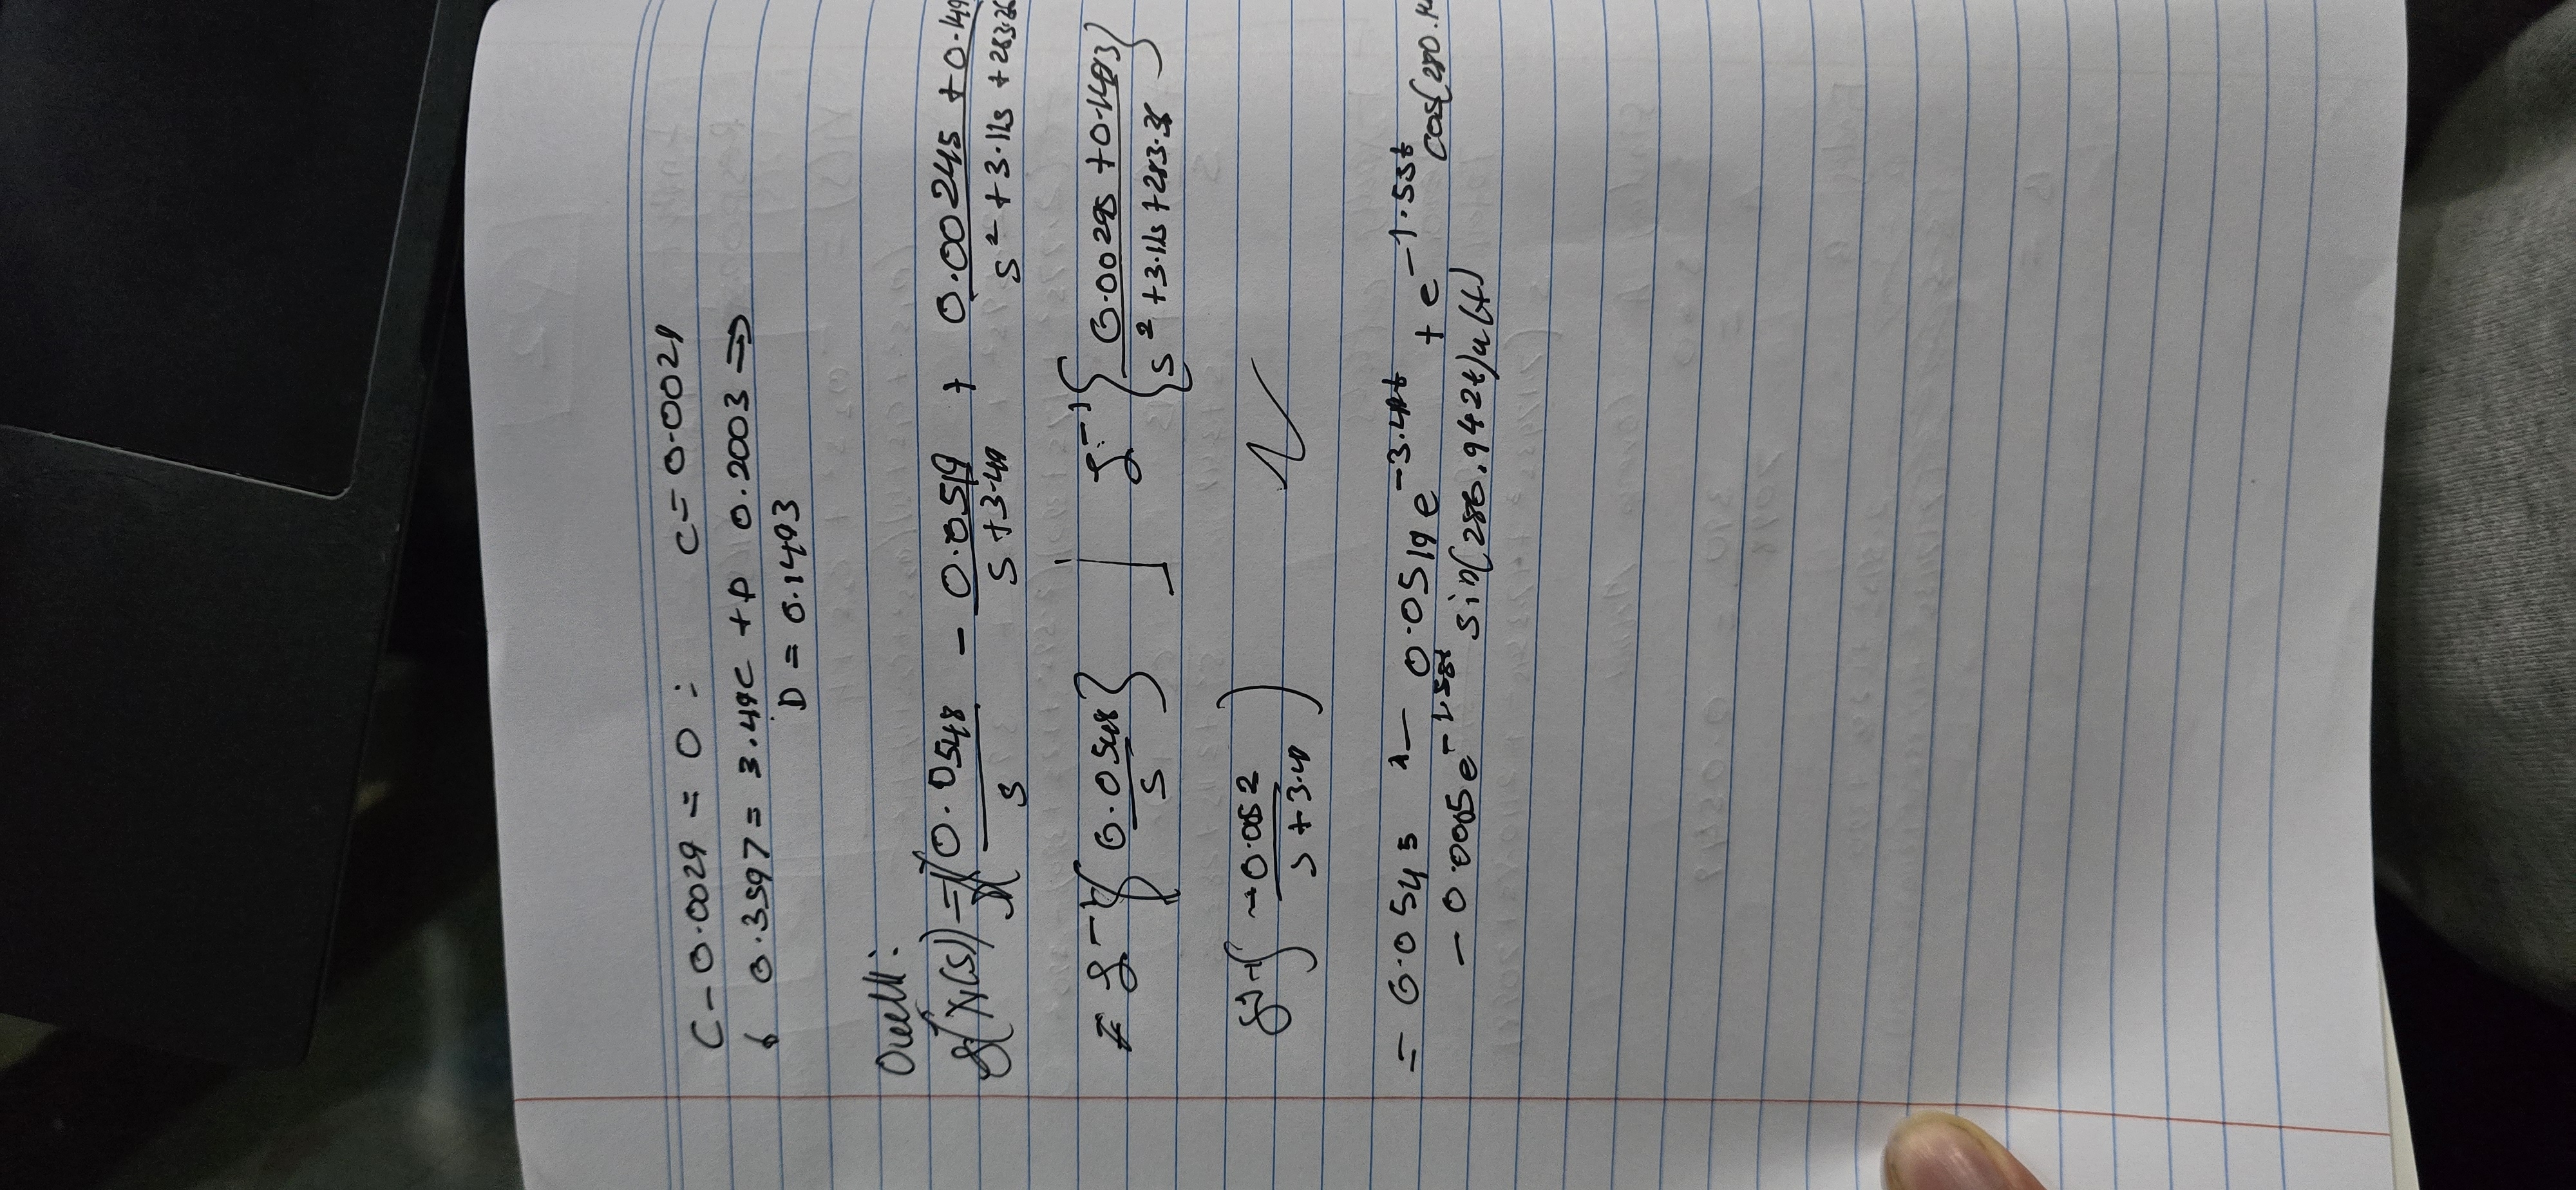 C - 0.0029 = 0 : C = 0.0029
0.3597 = 3.49C + D 0.2003 ⇒
D = 0.1493
Overall:
(X(s)) = 0.0548/s - 0.0519/s+3.49 + 0.0024s + 0.149/s² + 3.11s + 283.36
ℒ⁻¹{0.0548/s} ℒ⁻¹{0.0029s + 0.1493/s² + 3.11s + 283.36}
ℒ⁻¹{-0.052/s+3.49}
= 0.0545 - 0.0519e^-3.49t + e^-1.55t cos(280.
- 0.0005e^-1.55t sin(286.942t)u(t)